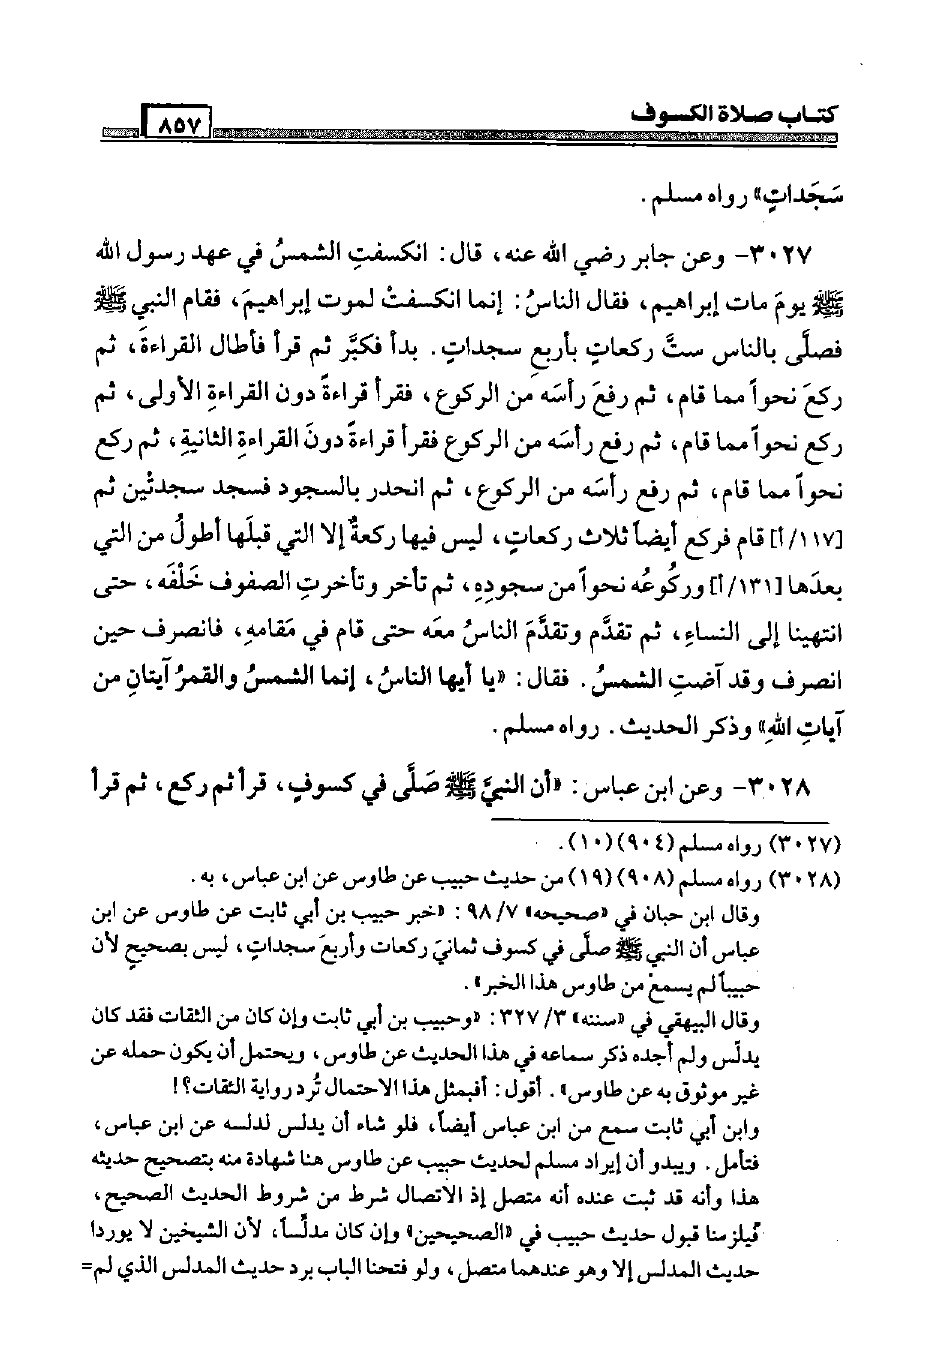 كتاب صلاة الكسوف
٨٥٧
سَجَداتٍ» رواه مسلم .
٣٠٢٧- وعن جابر رضي الله عنه، قال: انكسفتِ الشمسُ في عهد رسول الله
ﷺ يومَ مات إبراهيم، فقال الناسُ: إنما انكسفتْ لموت إبراهيمَ، فقام النبي ﷺ
فصلَّى بالناس ستَّ ركعاتٍ بأربعِ سجداتٍ. بدأ فكبَّر ثم قرأ فأطال القراءةَ، ثم
ركعَ نحواً مما قام، ثم رفعَ رأسَه من الركوع، فقرأ قراءةً دون القراءةِ الأولى، ثم
ركع نحواً مما قام، ثم رفع رأسَه من الركوع فقرأ قراءةً دونَ القراءةِ الثانيةِ، ثم ركع
نحواً مما قام، ثم رفع رأسَه من الركوع، ثم انحدر بالسجود فسجد سجدتين ثم
[١١٧/أ] قام فركع أيضاً ثلاث ركعاتٍ، ليس فيها ركعةٌ إلا التي قبلَها أطولُ من التي
بعدَها [١٣١/أ] وركُوعُه نحواً من سجودِهِ، ثم تأخر وتأخرتِ الصفوف خَلْفَه، حتى
انتهينا إلى النساءِ، ثم تقدَّم وتقدَّمَ الناسُ معَه حتى قام في مَقامِه، فانصرف حين
انصرف وقد آضتِ الشمسُ. فقال: «يا أيها الناسُ، إنما الشمسُ والقمرُ آيتانِ من
آياتِ اللهِ» وذكر الحديث. رواه مسلم.
٣٠٢٨- وعن ابن عباس: «أن النبيَّ ﷺ صَلَّى في كسوفٍ، قرأ ثم ركع، ثم قرأ
(٣٠٢٧) رواه مسلم (٩٠٤)(١٠).
(٣٠٢٨) رواه مسلم (٩٠٨)(١٩) من حديث حبيب عن طاوس عن ابن عباس، به.
وقال ابن حبان في «صحيحه» ٧/ ٩٨: «خبر حبيب بن أبي ثابت عن طاوس عن ابن
عباس أن النبي ﷺ صلَّى في كسوف ثمانيَ ركعات وأربعَ سجداتٍ، ليس بصحيحٍ لأن
حبيباً لم يسمعْ من طاوس هذا الخبر».
وقال البيهقي في «سننه» ٣/ ٣٢٧: «وحبيب بن أبي ثابت وإن كان من الثقات فقد كان
يدلّس ولم أجده ذكر سماعه في هذا الحديث عن طاوس، ويحتمل أن يكون حمله عن
غير موثوق به عن طاوس». أقول: أفبمثل هذا الاحتمال تُرد رواية الثقات؟!
وابن أبي ثابت سمع من ابن عباس أيضاً، فلو شاء أن يدلس لدلسه عن ابن عباس،
فتأمل. ويبدو أن إيراد مسلم لحديث حبيب عن طاوس هنا شهادة منه بتصحيح حديثه
هذا وأنه قد ثبت عنده أنه متصل إذ الاتصال شرط من شروط الحديث الصحيح،
فيلزمنا قبول حديث حبيب في «الصحيحين» وإن كان مدلّساً، لأن الشيخين لا يوردا
حديث المدلس إلا وهو عندهما متصل، ولو فتحنا الباب برد حديث المدلس الذي لم=